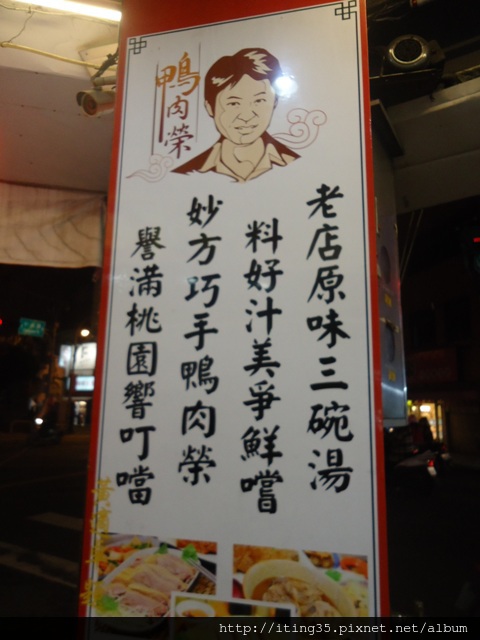 鴨肉榮
老店原味三碗湯
料好汁美爭鮮嚐
妙方巧手鴨肉榮
譽滿桃園響叮噹
http://iting35.pixnet.net/album